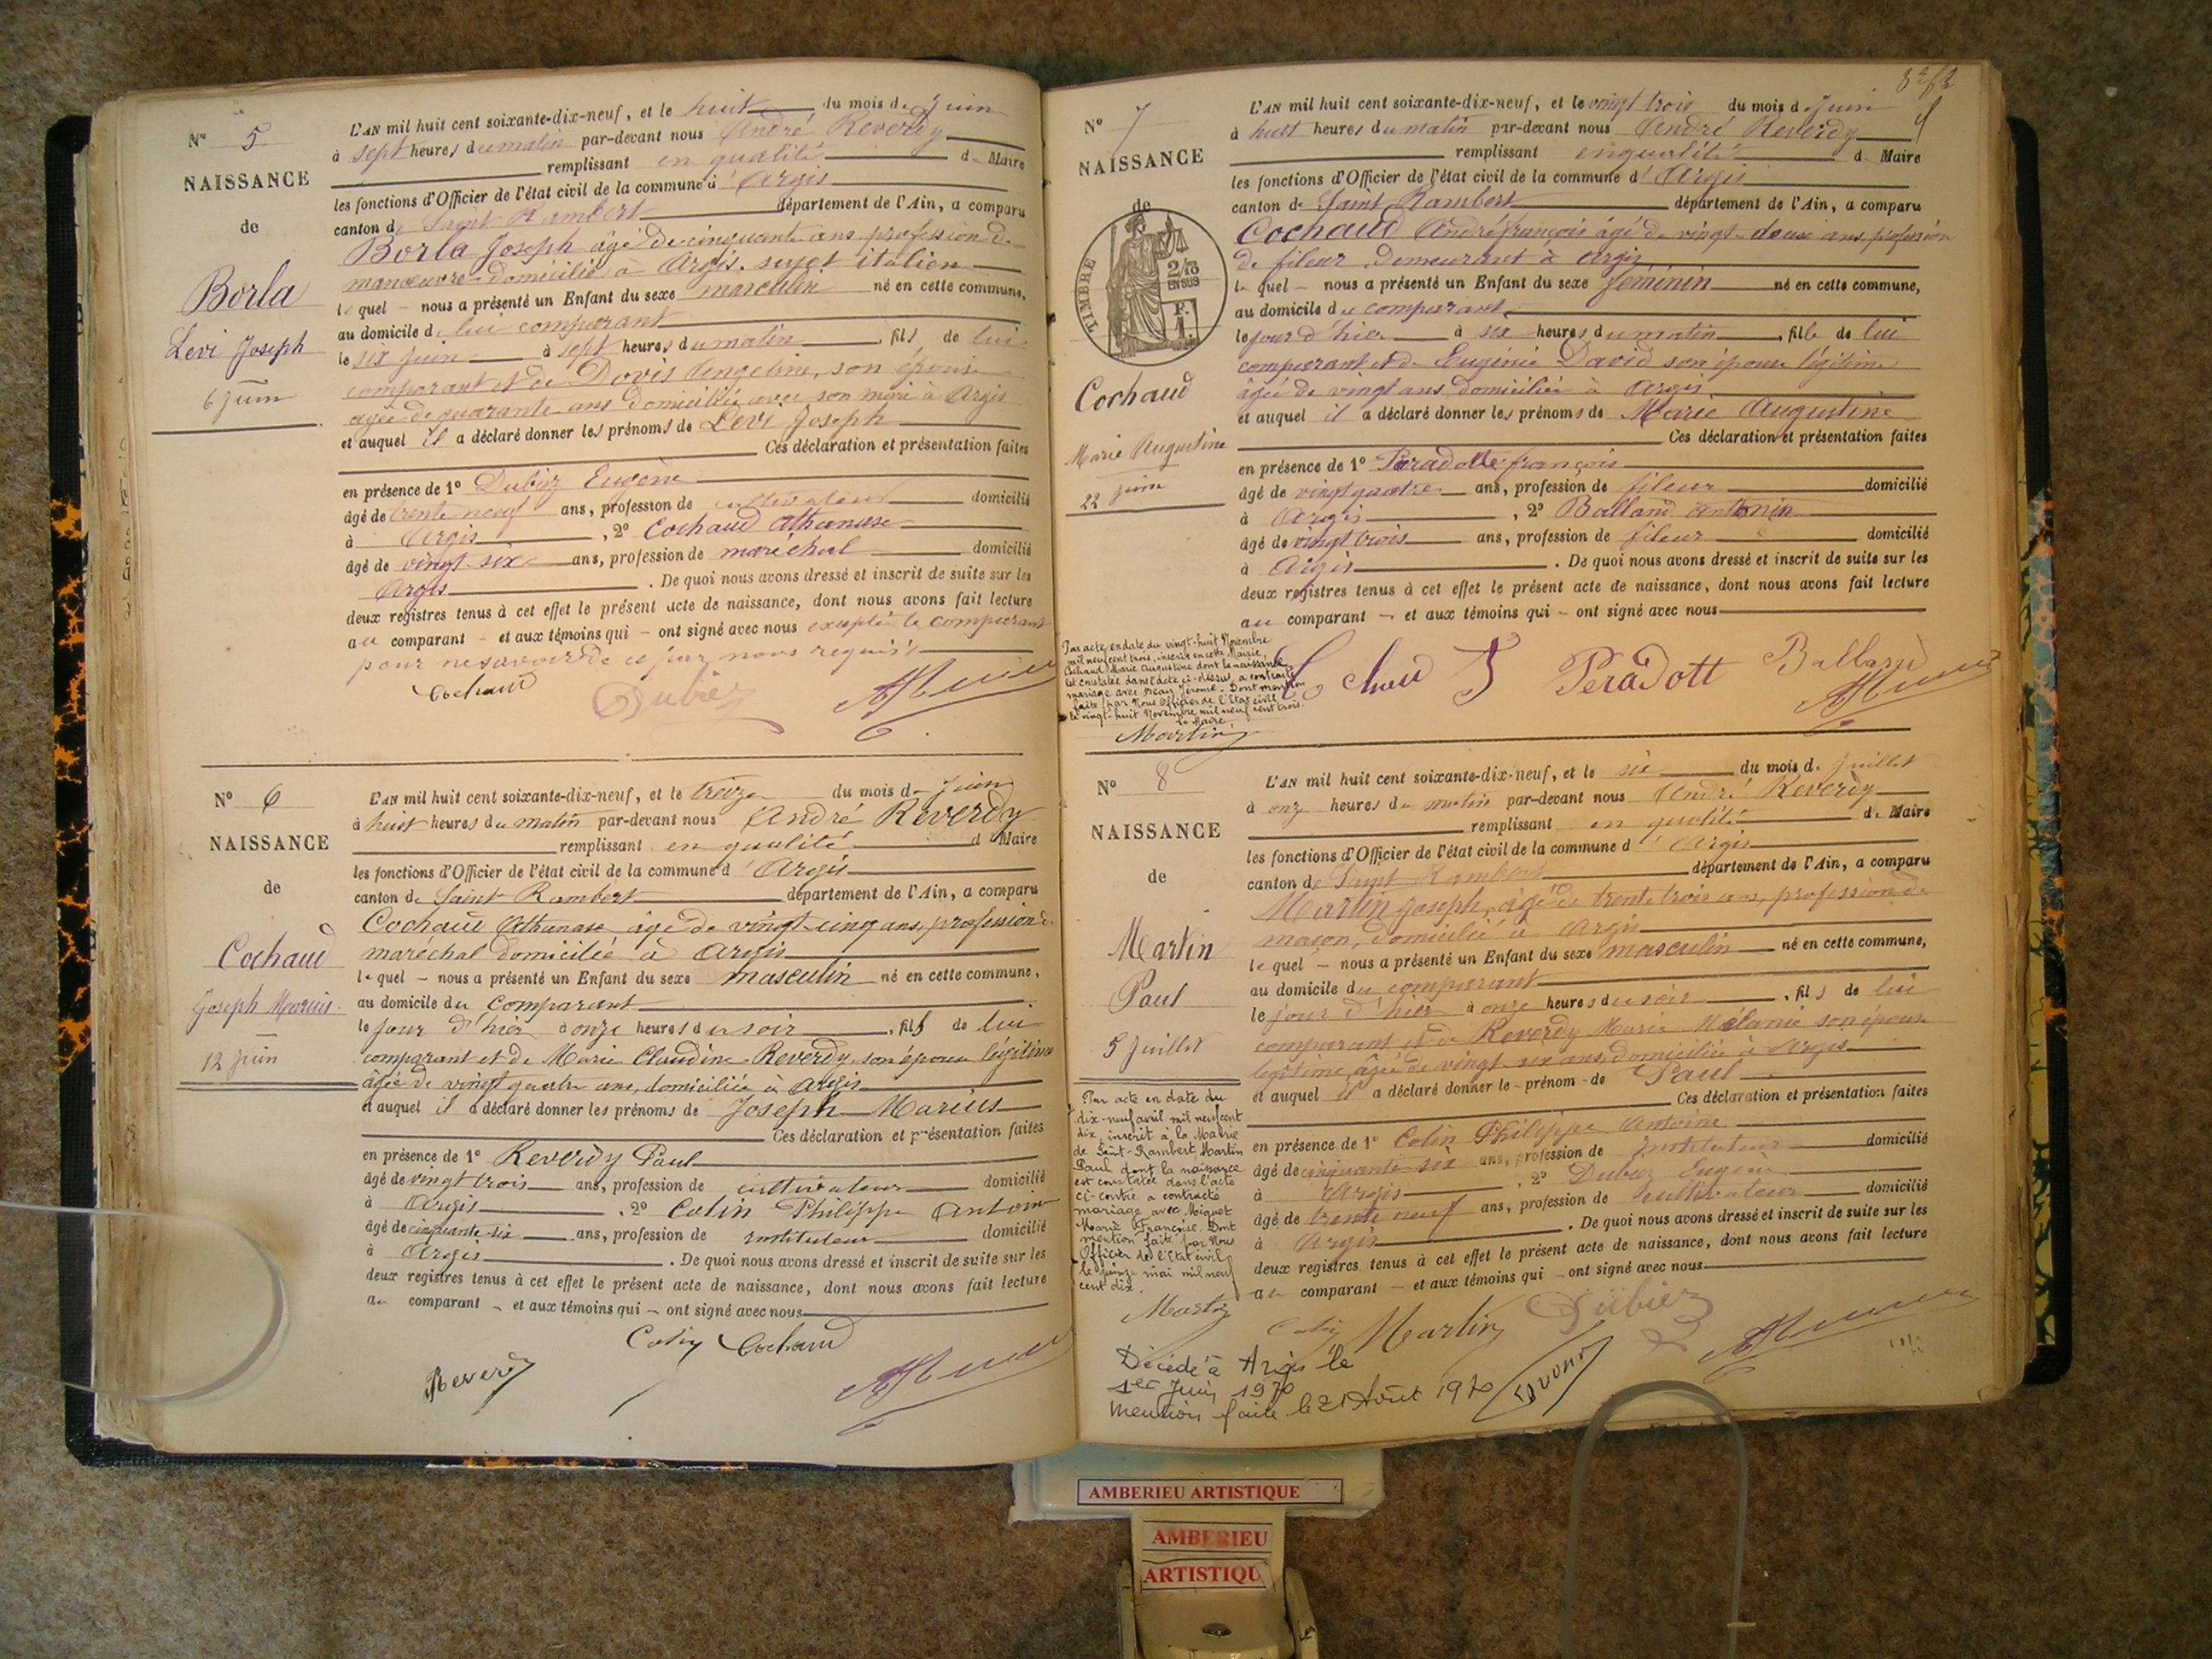 N° 5
NAISSANCE
de
Borla
Levi Joseph
6 juin
L'AN mil huit cent soixante-dix-neuf, et le huit du mois de Juin
à sept heures du matin par-devant nous André Reverdy
remplissant en qualité de Maire
les fonctions d'Officier de l'état civil de la commune d'Argis
canton de Saint Rambert département de l'Ain, a comparu
Borla Joseph âgé de cinquante ans profession de
manœuvre domicilié à Argis, sujet italien
lequel - nous a présenté un Enfant du sexe masculin né en cette commune,
au domicile de lui comparant
le six juin à sept heures du matin, fils de lui
comparant et de Dovis Angeline, son épouse
âgée de quarante ans domiciliée avec son mari à Argis
et auquel il a déclaré donner les prénoms de Levi Joseph
Ces déclaration et présentation faites
en présence de 1° Dubiez Eugène
âgé de trente neuf ans, profession de cultivateur domicilié
à Argis, 2° Cochaud Athanase
âgé de vingt-six ans, profession de maréchal domicilié
Argis. De quoi nous avons dressé et inscrit de suite sur les
deux registres tenus à cet effet le présent acte de naissance, dont nous avons fait lecture
au comparant - et aux témoins qui - ont signé avec nous excepté le comparant
pour ne savoir de ce par nous requis
Cochaud Dubiez
N° 6
NAISSANCE
de
Cochaud
Joseph Marius
12 juin
L'AN mil huit cent soixante-dix-neuf, et le treize du mois de Juin
à huit heures du matin par-devant nous André Reverdy
remplissant en qualité de Maire
les fonctions d'Officier de l'état civil de la commune d'Argis
canton de Saint Rambert département de l'Ain, a comparu
Cochaud Athanase âgé de vingt-cinq ans, profession de
maréchal domicilié à Argis
lequel - nous a présenté un Enfant du sexe masculin né en cette commune,
au domicile du comparant
le jour d'hier à onze heures du soir, fils de lui
comparant et de Marie Claudine Reverdy, son épouse légitime
âgée de vingt quatre ans, domiciliée à Argis
et auquel il a déclaré donner les prénoms de Joseph Marius
Ces déclaration et présentation faites
en présence de 1° Reverdy Paul
âgé de vingt trois ans, profession de cultivateur domicilié
à Argis, 2° Colin Philippe Antoine
âgé de cinquante-six ans, profession de instituteur domicilié
à Argis. De quoi nous avons dressé et inscrit de suite sur les
deux registres tenus à cet effet le présent acte de naissance, dont nous avons fait lecture
au comparant - et aux témoins qui - ont signé avec nous
Colin Cochaud
Reverdy
N° 7
NAISSANCE
de
TIMBRE
2/10
EN SUS
Cochaud
Marie Augustine
22 juin
L'AN mil huit cent soixante-dix-neuf, et le vingt trois du mois de Juin
à huit heures du matin par-devant nous André Reverdy
remplissant en qualité de Maire
les fonctions d'Officier de l'état civil de la commune d'Argis
canton de Saint Rambert département de l'Ain, a comparu
Cochaud André françois âgé de vingt-deux ans, profession
de fileur, demeurant à Argis
lequel - nous a présenté un Enfant du sexe féminin né en cette commune,
au domicile du comparant
le jour d'hier à six heures du matin, fille de lui
comparant et de Eugénie David son épouse légitime
âgée de vingt ans domiciliée à Argis
et auquel il a déclaré donner les prénoms de Marie Augustine
Ces déclaration et présentation faites
en présence de 1° Peradotte françois
âgé de vingt quatre ans, profession de fileur domicilié
à Argis, 2° Balland Anttonin
âgé de vingt trois ans, profession de fileur domicilié
à Argis. De quoi nous avons dressé et inscrit de suite sur les
deux registres tenus à cet effet le présent acte de naissance, dont nous avons fait lecture
au comparant - et aux témoins qui - ont signé avec nous
Par acte en date du vingt-huit Novembre
mil neuf cent trois, inscrit en cette Mairie,
Cochaud Marie Augustine dont la naissance
est constatée dans l'acte ci-dessus, a contracté
mariage avec Jérome. Dont mention
faite par Nous Officier de l'état civil
le vingt-huit Novembre mil neuf cent trois.
Le Maire,
Martin
Peradott Balland
N° 8
NAISSANCE
de
Martin
Paul
5 Juillet
L'AN mil huit cent soixante-dix-neuf, et le six du mois de Juillet
à onze heures du matin par-devant nous André Reverdy
remplissant en qualité de Maire
les fonctions d'Officier de l'état civil de la commune d'Argis
canton de Saint Rambert département de l'Ain, a comparu
Martin Joseph, âgé de trente trois ans, profession de
maçon, domicilié à Argis
lequel - nous a présenté un Enfant du sexe masculin né en cette commune,
au domicile du comparant
le jour d'hier à onze heures du soir, fils de lui
comparant et de Reverdy Marie Mélanie son épouse
légitime âgée de vingt-six ans, domiciliée à Argis
et auquel il a déclaré donner le - prénom - de Paul
Ces déclaration et présentation faites
en présence de 1° Colin Philippe Antoine
âgé de cinquante-six ans, profession de instituteur domicilié
à Argis, 2° Dubiez Eugène
âgé de trente neuf ans, profession de cultivateur domicilié
à Argis. De quoi nous avons dressé et inscrit de suite sur les
deux registres tenus à cet effet le présent acte de naissance, dont nous avons fait lecture
au comparant - et aux témoins qui - ont signé avec nous
Par acte en date du
dix-neuf avril mil neuf cent
dix, inscrit à la Mairie
de Saint-Rambert, Martin
Paul dont la naissance
est constatée dans l'acte
ci-contre a contracté
mariage avec Miguet
Marie Françoise. Dont
mention faite par Nous
Officier de l'Etat civil
le quinze mai mil neuf
cent dix.
Martin
Colin Martin Dubiez
Décédé à Argis le
1er Juin 1970
mention faite le 21 Août 1970
AMBERIEU ARTISTIQUE
AMBERIEU
ARTISTIQU